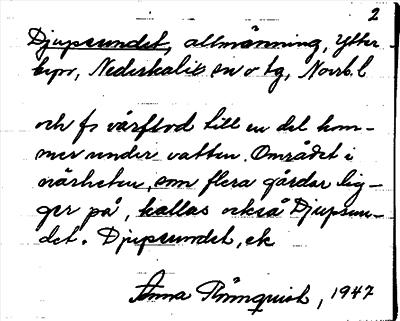 2
Djupsundet, allmänning, Ytter-
byn, Nederkalix sn o tg, Norrb. l
och fs vårflod till en del kom-
mer under vatten. Området i
närheten, som flera gårdar lig-
ger på, kallas också Djupsun-
det. Djupsundet, ek
Anna Rönnquist, 1947